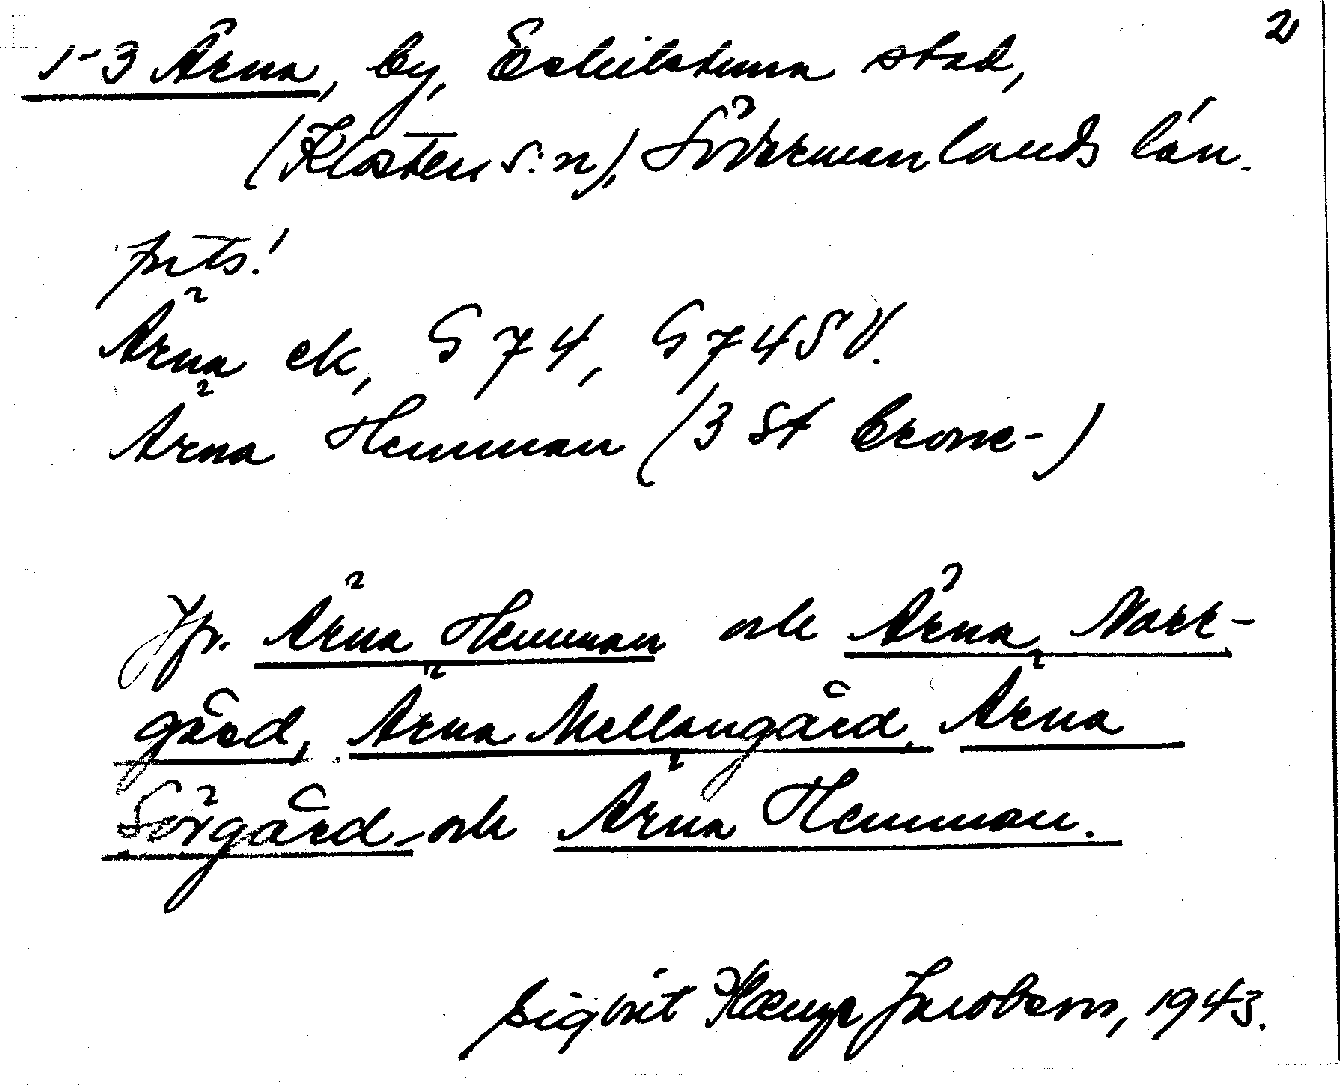 2
1-3 Ärna, by, Eskilstuna stad,
(Klosters s:n), Södermanlands län.
forts!
Ärna ek, G 74, G 74 SV.
Ärna Hemman (3 St Crone-)
Jfr. Ärna Hemman och Ärna Norr-
gård, Ärna Mellangård, Ärna
Sörgård och Ärna Hemman.
Sigurit Jacobson, 1943.